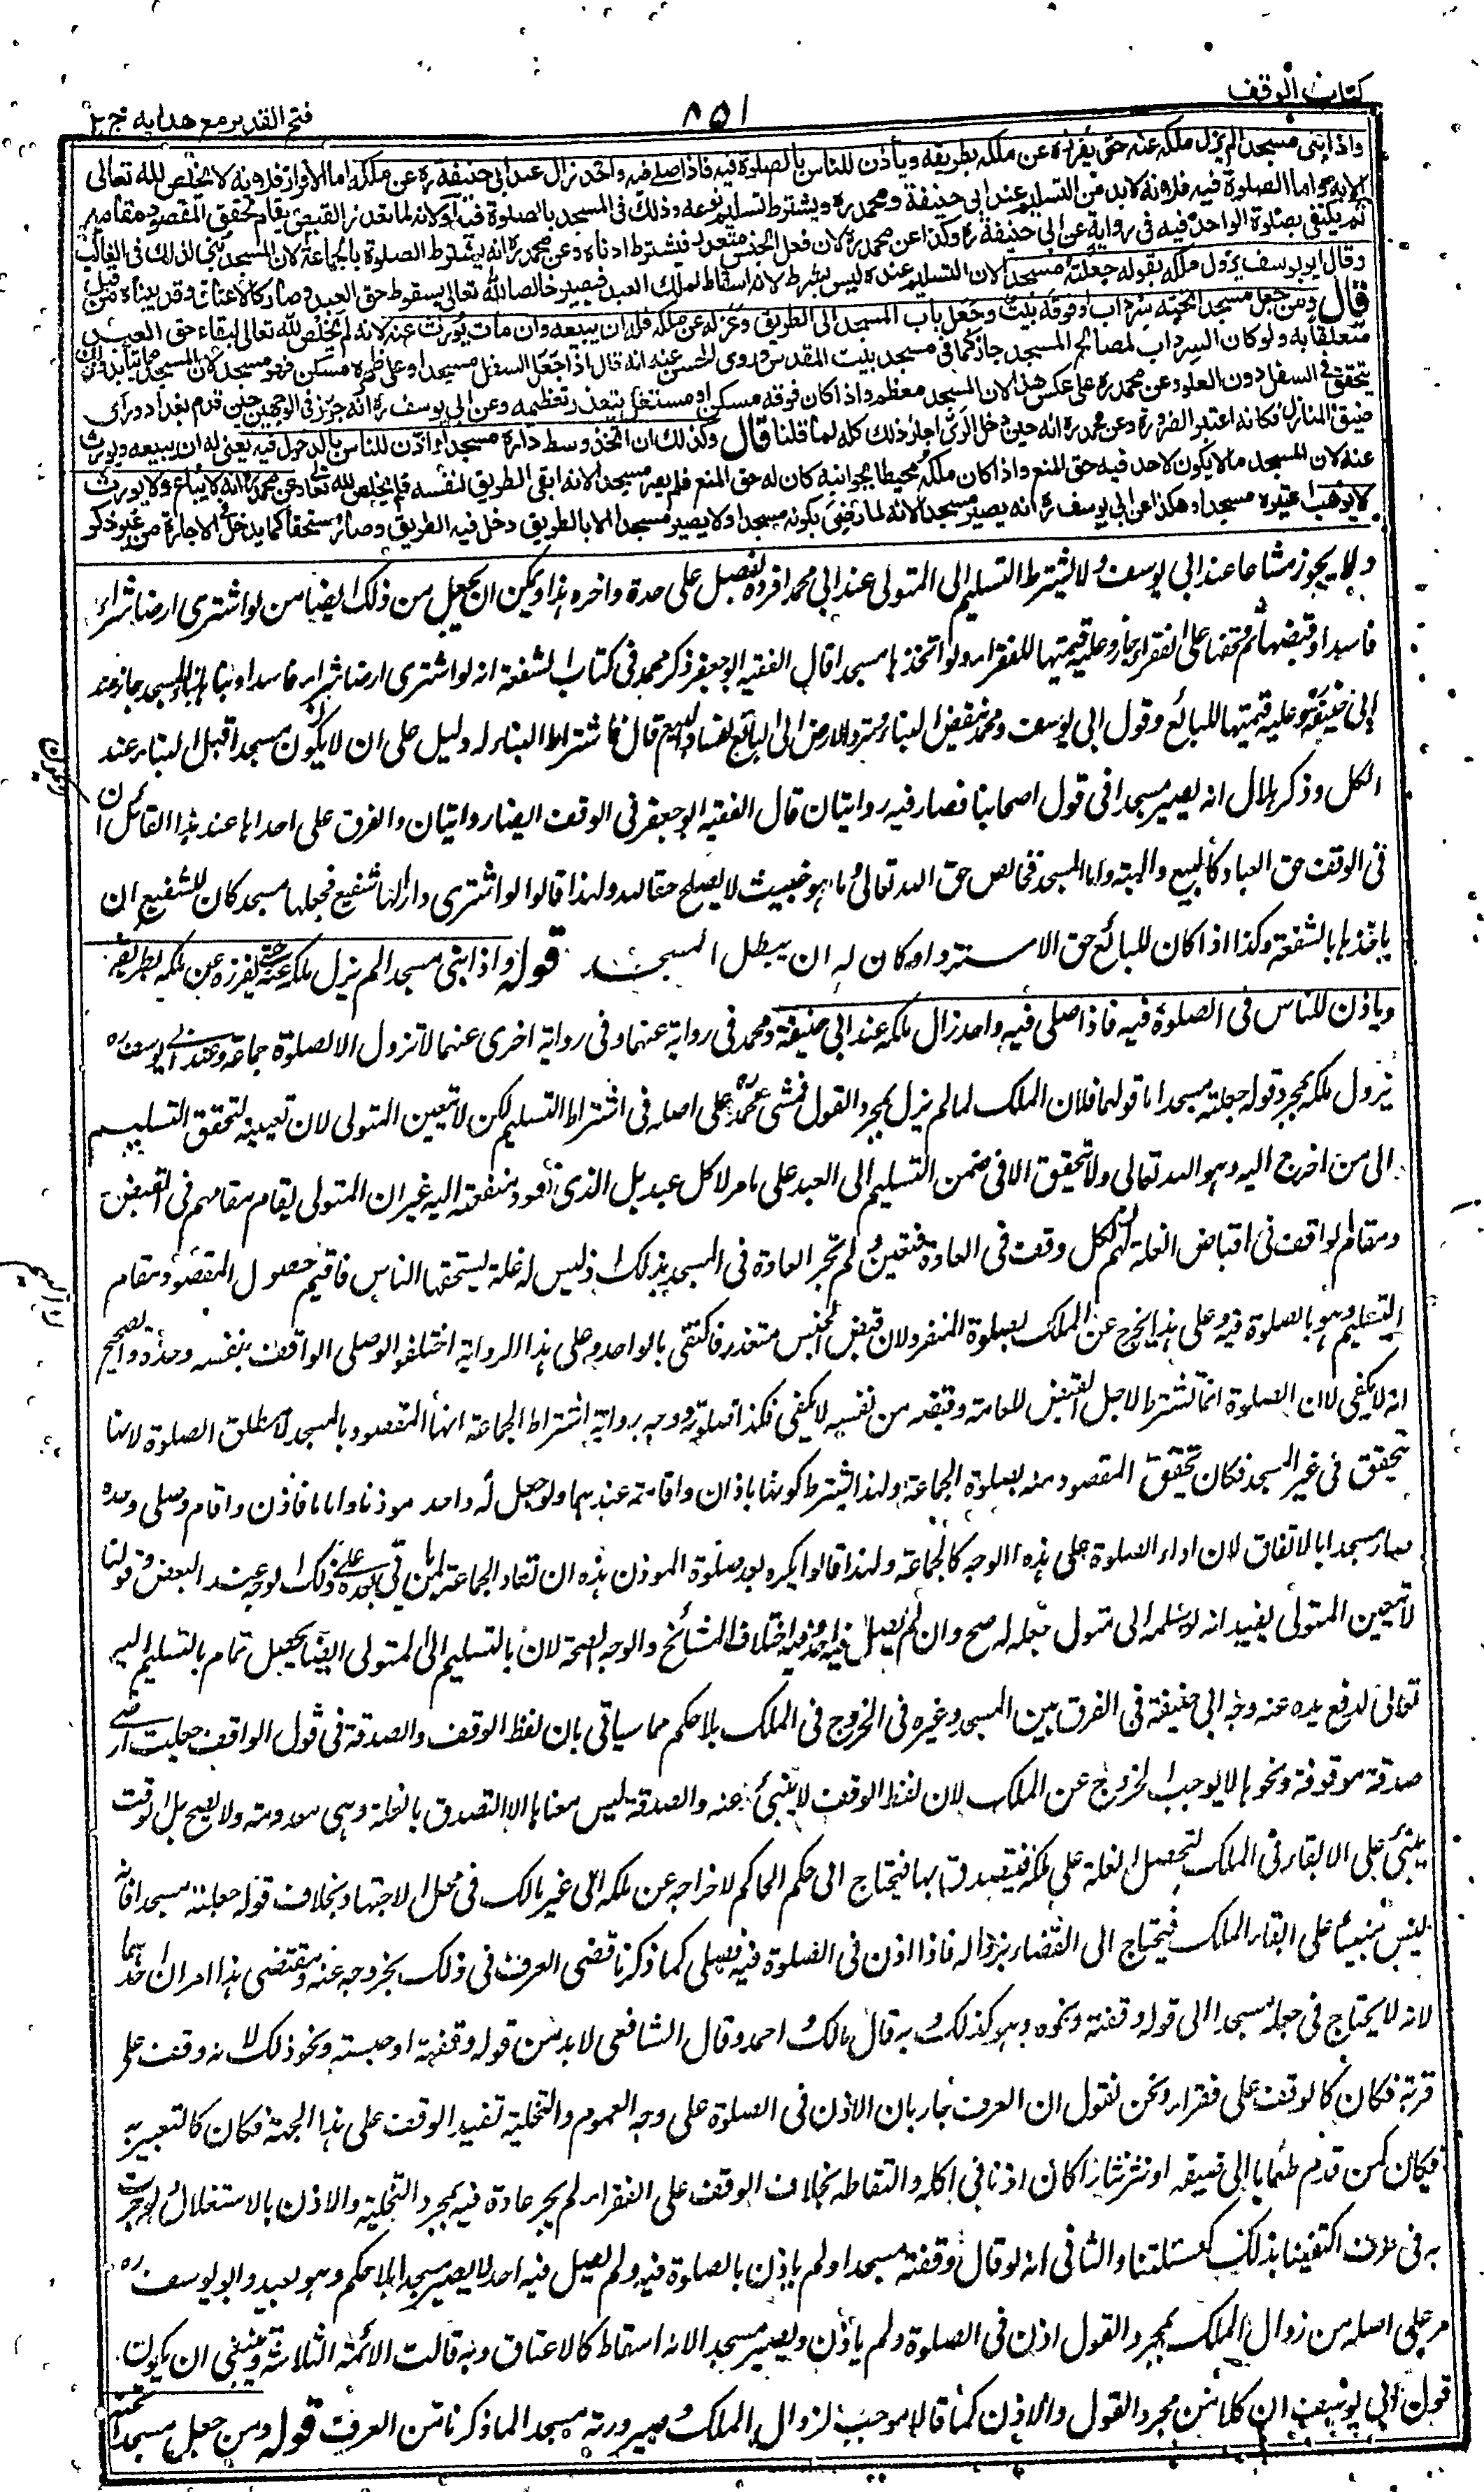 كتاب الوقف
٨٥١
فتح القدير مع هدايه ج ٢
واذا بنى مسجدا لم يزل ملكه عنه حتى يفرزه عن ملكه بطريقه ويأذن للناس بالصلوة فيه فاذا صلى فيه واحد زال عند ابى حنيفة ره عن ملكه اما الافراز فلانه لا يخلص لله تعالى
الا به واما الصلوة فيه فلانه لا بد من التسليم عند ابى حنيفة ومحمد ره ويشترط تسليم نوعه وذلك فى المسجد بالصلوة فيه او لانه لما تعذر القبض يقام تحقق المقصود مقامه
ثم يكتفى بصلوة الواحد فيه فى رواية عن ابى حنيفة ره وكذا عن محمد ره لان فعل الجنس متعذر فيشترط ادناه وعن محمد ره انه يشترط الصلوة بالجماعة لان المسجد بنى لذلك فى الغالب
وقال ابو يوسف يزول ملكه بقوله جعلته مسجدا لان التسليم عنده ليس بشرط لانه اسقاط لملك العبد فيصير خالصا لله تعالى بسقوط حق العبد وصار كالاعتاق وقد بيناه من قبل
قال ومن جعل مسجدا تحته سرداب او فوقه بيت وجعل باب المسجد الى الطريق وعزله عن ملكه فله ان يبيعه وان مات يورث عنه لانه لم يخلص لله تعالى لبقاء حق العبد
متعلقا به ولو كان السرداب لمصالح المسجد جاز كما فى مسجد بيت المقدس وروى الحسن عنه انه قال اذا جعل السفل مسجدا وعلى ظهره مسكن فهو مسجد لان المسجد مما يتأبد وذلك
يتحقق فى السفل دون العلو وعن محمد ره على عكس هذا لان المسجد معظم واذا كان فوقه مسكن او مستغل يتعذر تعظيمه وعن ابى يوسف ره انه جوز فى الوجهين حين قدم بغداد ورأى
ضيق المنازل فكانه اعتبر الضرورة وعن محمد ره انه حين دخل الرى اجاز ذلك كله لما قلنا قال وكذلك ان اتخذ وسط داره مسجدا واذن للناس بالدخول فيه يعنى له ان يبيعه ويورث
عنه لان المسجد ما لا يكون لاحد فيه حق المنع واذا كان ملكه محيطا بجوانبه كان له حق المنع فلم يصر مسجدا لانه ابقى الطريق لنفسه فلم يخلص لله تعالى وعن محمد ره انه لا يباع ولا يورث
لا يوهب اعتبره مسجدا وهكذا عن ابى يوسف ره انه يصير مسجدا لانه لما رضى بكونه مسجدا ولا يصير مسجدا الا بالطريق دخل فيه الطريق وصار مستحقا كما يدخل فى الاجارة من غير ذكر
ولا يجوز مشاعا عند ابى يوسف ولا يشترط التسليم الى المتولى عند محمد افرده بفصل على حدة واخره هذا ويمكن ان يجعل من ذلك ايضا من لو اشترى ارضا شراء
فاسدا وقبضها ثم وقفها على الفقراء جاز وعليه قيمتها للفقراء ولو اتخذها مسجدا قال الفقيه ابو جعفر ذكر محمد فى كتاب الشفعة انه لو اشترى ارضا شراء فاسدا وبناها بناء المسجد جاز عند
ابى حنيفة وعليه قيمتها للبائع وقول ابى يوسف ومحمد ينقض البناء وترد الارض الى البائع لفساد البيع قال فاشتراط البناء له دليل على ان لا يكون مسجدا قبل البناء عند
الكل وذكر هلال انه يصير مسجدا فى قول اصحابنا فصار فيه روايتان قال الفقيه ابو جعفر فى الوقف ايضا روايتان والفرق على احداهما عند هذا القائل ان
فى الوقف حق العباد كالبيع والهبة واما المسجد فخالص حق الله تعالى وما هو خبيث لا يصلح حقا لله ولهذا قالوا لو اشترى دارا لها شفيع فجعلها مسجدا كان للشفيع ان
ياخذها بالشفعة وكذا اذا كان للبائع حق الاسترداد كان له ان يبطل المسجد قوله واذا بنى مسجدا لم يزل ملكه عنه حتى يفرزه عن ملكه بطريقه
وياذن للناس فى الصلوة فيه فاذا صلى فيه واحد زال ملكه عند ابى حنيفة ومحمد فى رواية عنهما وفى رواية اخرى عنهما لا تزول الا لصلوة جماعة وعند ابى يوسف ره
يزول ملكه بمجرد قوله جعلته مسجدا اما قولهما فلان الملك لما لم يزل بمجرد القول فمشى محمد ره على اصله فى اشتراط التسليم لكن لا تعين المتولى لان تعيينه لتحقق التسليم
الى من اخرج اليه وهو الله تعالى ولا تحقيق الا فى ضمن التسليم الى العبد على ما مر لا كل عبد بل الذى تعود منفعته اليه غير ان المتولى يقام مقامهم فى القبض
ومقام الواقف فى اقباض الغلة لهم لكل وقف فى العادة فتعين ولم تجر العادة فى المسجد بذلك اذ ليس له غلة يستحقها الناس فاقيم حصول المقصود مقام
التسليم وهو بالصلوة فيه وعلى هذا يخرج عن الملك بصلوة المنفرد لان قبض الجنس متعذر فاكتفى بالواحد وعلى هذا الرواية اختلفوا لو صلى الواقف بنفسه وحده والصحيح
انه لا يكفى لان الصلوة انما تشترط لاجل القبض للعامة وقبضه من نفسه لا يكفى فكذا صلوته ووجه رواية اشتراط الجماعة انها المقصود بالمسجد لا مطلق الصلوة لانها
تتحقق فى غير المسجد فكان تحقق المقصود منه بصلوة الجماعة ولهذا يشترط كونها باذان واقامة عندهما ولو جعل له واحد موذنا واماما فاذن واقام وصلى وحده
صار مسجدا بالاتفاق لان اداء الصلوة على هذا الوجه كالجماعة ولهذا قالوا يكره بعد صلوة الموذن هذه ان تعاد الجماعة لمن ياتى بعده على ذلك الوجه عند البعض وقولنا
لا تعيين المتولى يفيد انه لو سلمه الى متول جعله له صح وان لم يصل فيه احد وفيه اختلاف المشائخ والوجه الصحة لان بالتسليم الى المتولى ايضا يحصل تمام بالتسليم اليه
تعالى لدفع يده عنه وجه ابى حنيفة فى الفرق بين المسجد وغيره فى الخروج فى الملك بلا حكم مما سياتى بان لفظ الوقف والصدقة فى قول الواقف جعلت ارضى
صدقة موقوفة ونحوها لا يوجب الخروج عن الملك لان لفظ الوقف لا ينبئ عنه والصدقة ليس معناها الا التصدق بالغلة وهى معدومة ولا يصح بل الوقف
ينبئ على الابقاء فى الملك لتحصل الغلة على ملكه فيتصدق بها فيحتاج الى حكم الحاكم لاخراجه عن ملكه الى غير مالك فى محل الاجتهاد بخلاف قوله جعلته مسجدا فانه
ليس منبئا على ابقاء الملك فيحتاج الى القضاء بزواله فاذا اذن فى الصلوة فيه فصلى كما ذكرنا قضى العرف فى ذلك بخروجه عنه ومقتضى هذا امران احدهما
لانه لا يحتاج فى جعله مسجدا الى قوله وقفته ونحوه وهو كذلك وبه قال مالك واحمد وقال الشافعى لا بد من قوله وقفته او حبسته ونحو ذلك لانه وقف على
قربة فكان كالوقف على فقراء ونحن نقول ان العرف جار بان الاذن فى الصلوة على وجه العموم والتخلية تفيد الوقف على هذا الجهة فكان كالتعبير به
فكان كمن قدم طعاما الى ضيفه او نثر نثارا كان اذنا فى اكله والتقاطه بخلاف الوقف على الفقراء لم يجر عادة فيه بمجرد التخلية والاذن بالاستغلال ولو جرت
به فى عرف اكتفينا بذلك كمسئلتنا والثانى انه لو قال وقفته مسجدا ولم ياذن بالصلوة فيه ولم يصل فيه احد لا يصير مسجدا بلا حكم وهو بعيد وابو يوسف ره
مر على اصله من زوال الملك بمجرد القول اذن فى الصلوة ولم ياذن ويصير مسجدا لانه اسقاط كالاعتاق وبه قالت الائمة الثلاثة وينبغى ان يكون
قول ابى يوسف ان كلا من مجرد القول والاذن كما قالا موجب لزوال الملك وصيرورته مسجدا لما ذكرنا من العرف قوله ومن جعل مسجدا تحته